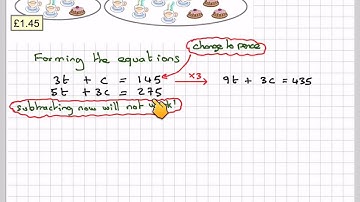 £1.45
Forming the equations
change to pence
3t + c = 145 x3 9t + 3c = 435
5t + 3c = 275
subtracting now will not work!